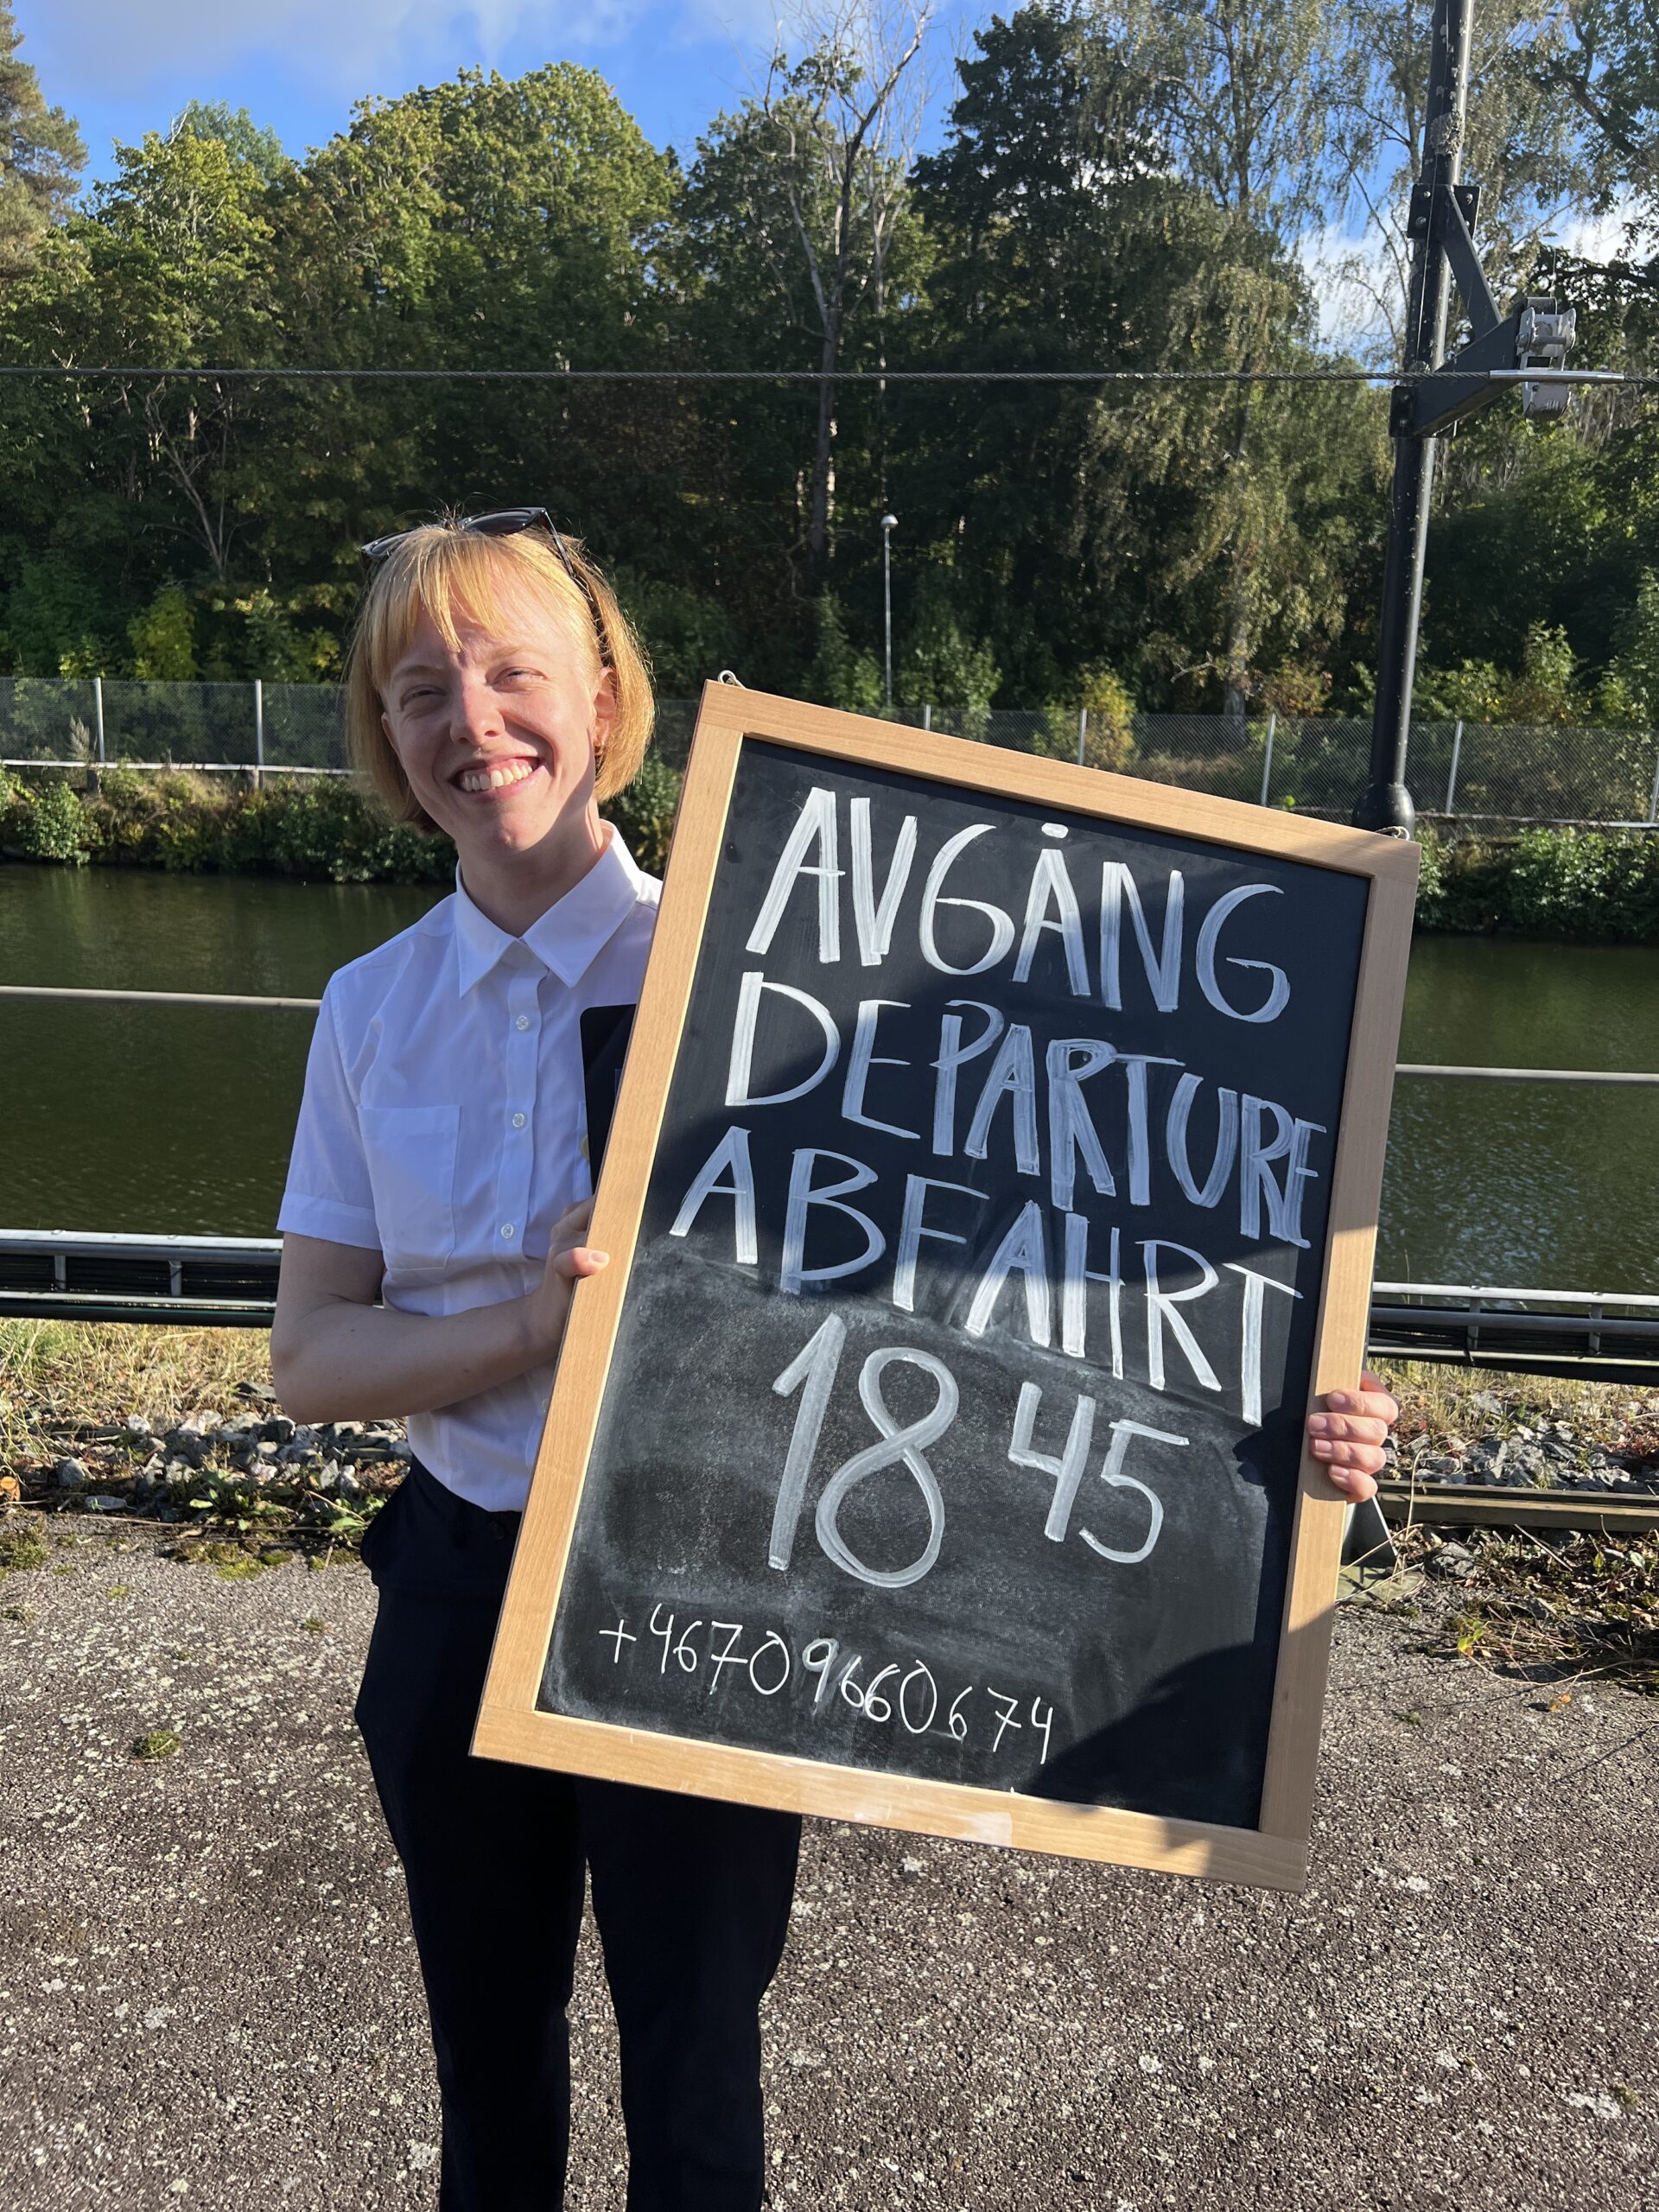 AVGÅNG
DEPARTURE
ABFAHRT
18 45
+46709660674